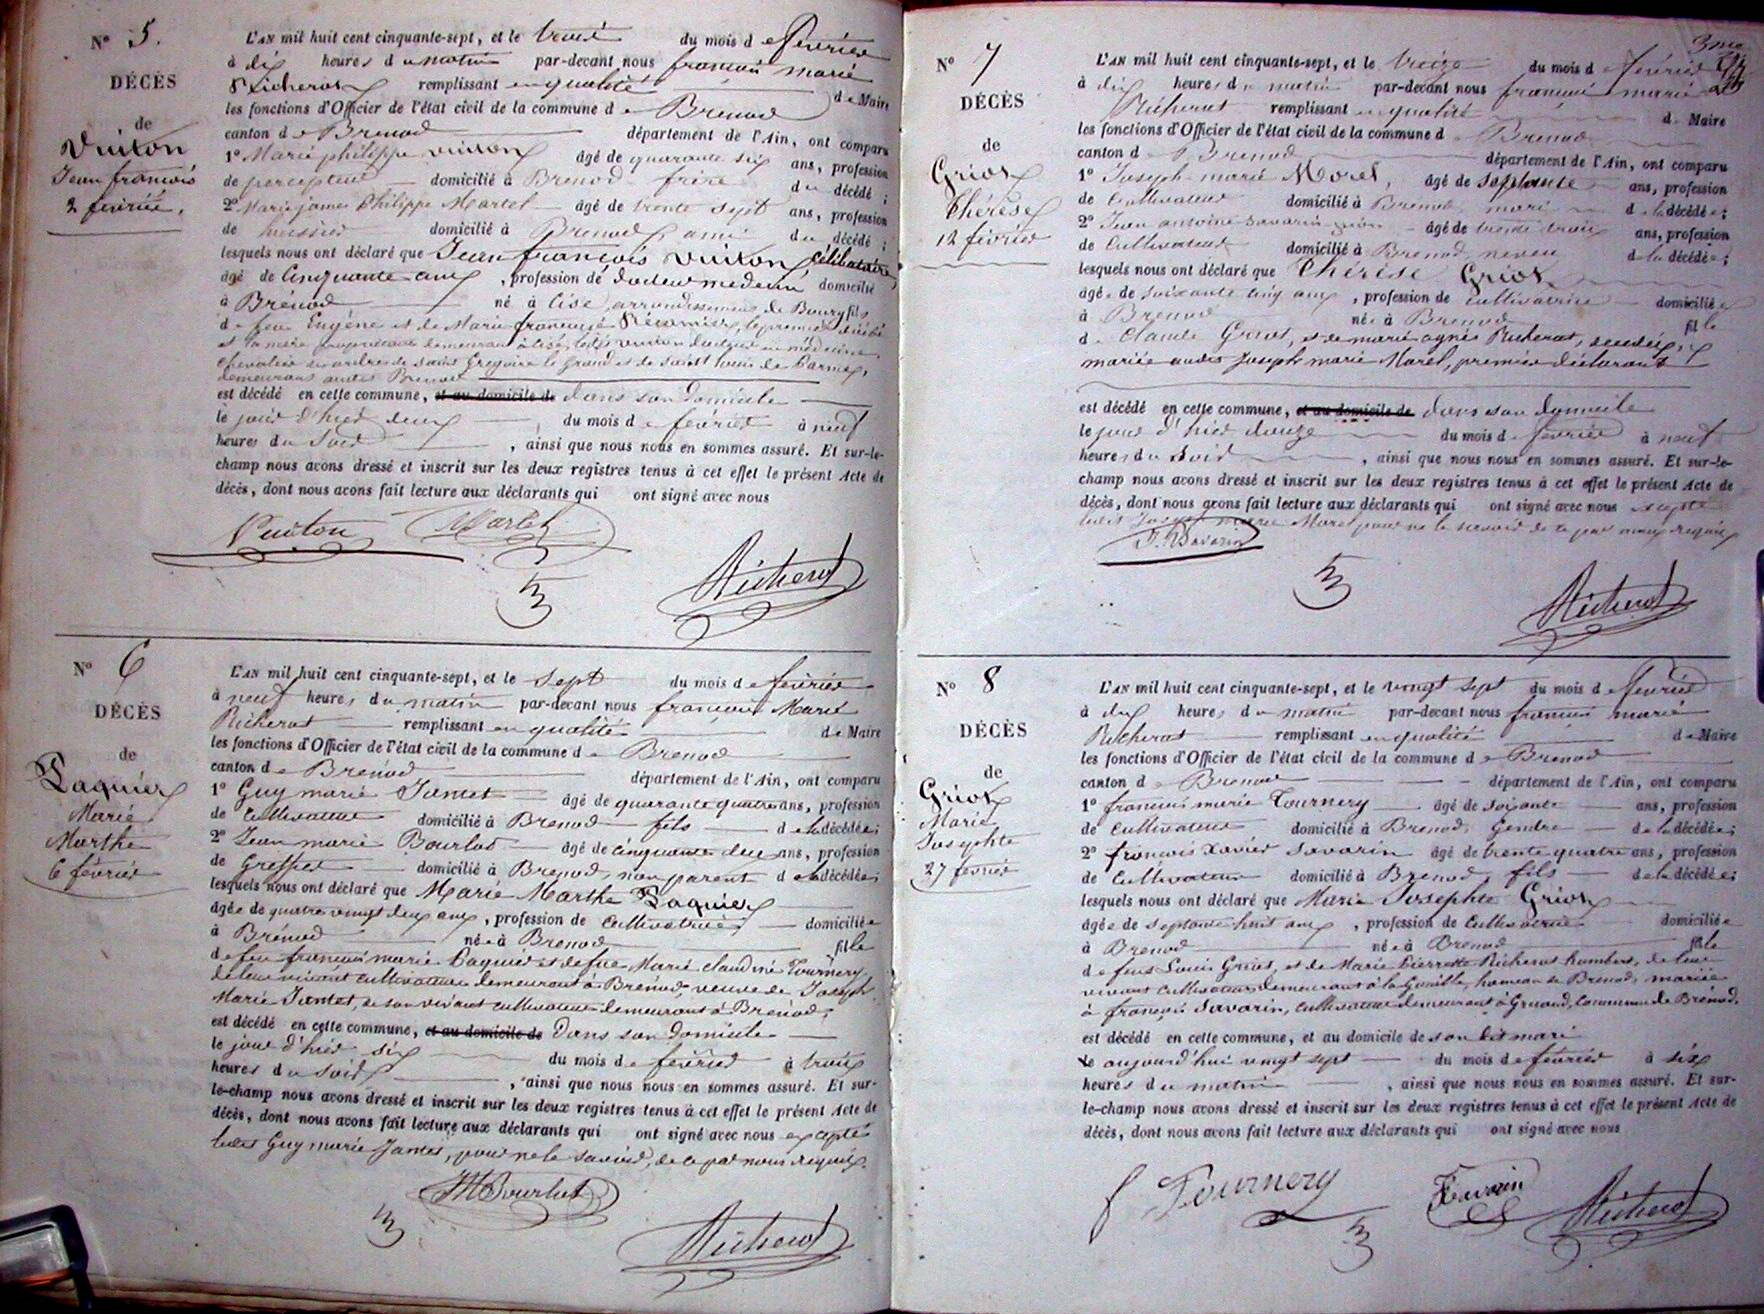 N° 5.
DÉCÈS
de
Vuiton
Jean françois
2 février.
L'AN mil huit cent cinquante-sept, et le trois du mois de février
à dix heures du matin par-devant nous françois marie
Richerot remplissant en qualité de Maire
les fonctions d'Officier de l'état civil de la commune de Brenod
canton de Brenod département de l'Ain, ont comparu
1° Marie philippe Vuiton âgé de quarante six ans, profession
de percepteur domicilié à Brenod frère du décédé ;
2° Marie james Philippe Martel âgé de trente sept ans, profession
de huissier domicilié à Brenod, ami du décédé ;
lesquels nous ont déclaré que Jean françois Vuiton, célibataire
âgé de Cinquante ans, profession de docteur médecin domicilié
à Brénod né à Cise, arrondissement de Bourg fils
de feu Eugène et de Marie françoise, le premier décédé
et la mère propriétaire demeurant à Cise, ledit Vuiton docteur en médecine
chevalier des ordres de saint Gregoire le Grand et de saint Louis de Parme,
demeurant audit Brenod
est décédé en cette commune, et au domicile de dans son domicile
le jour d'hier deux du mois de février à neuf
heures du soir, ainsi que nous nous en sommes assuré. Et sur-le-
champ nous avons dressé et inscrit sur les deux registres tenus à cet effet le présent Acte de
décès, dont nous avons fait lecture aux déclarants qui ont signé avec nous
Vuiton Martel
Richerot
N° 6
DÉCÈS
de
Paquier
Marie
Marthe
6 février
L'AN mil huit cent cinquante-sept, et le sept du mois de février
à neuf heures du matin par-devant nous françois Marie
Richerot remplissant en qualité de Maire
les fonctions d'Officier de l'état civil de la commune de Brenod
canton de Brénod département de l'Ain, ont comparu
1° Guy marie Jantet âgé de quarante quatre ans, profession
de Cultivateur domicilié à Brenod fils de la décédée;
2° Jean marie Bourbot âgé de cinquante deux ans, profession
de Greffier domicilié à Brenod, non parent de la décédée;
lesquels nous ont déclaré que Marie Marthe Paquier
âgée de quatre vingt deux ans, profession de Cultivatrice domiciliée
à Brénod née à Brenod fille
de feu françois marie Paquier et de feue Marie claudine Tournery
de leur vivant cultivateurs demeurant à Brenod, veuve de Joseph
Marie Jantet, de son vivant cultivateur demeurant à Brénod,
est décédé en cette commune, et au domicile de Dans son domicile
le jour d'hier six du mois de février à trois
heures du soir, ainsi que nous nous en sommes assuré. Et sur-
le-champ nous avons dressé et inscrit sur les deux registres tenus à cet effet le présent Acte de
décès, dont nous avons fait lecture aux déclarants qui ont signé avec nous excepté
ledit Guy marie Jantet, pour ne le savoir, de ce par nous requis.
Richerot
3me
N° 7
DÉCÈS
de
Griot
Thérèse
12 février
L'AN mil huit cent cinquante-sept, et le treize du mois de février
à dix heures du matin par-devant nous françois marie
Richerot remplissant en qualité de Maire
les fonctions d'Officier de l'état civil de la commune de Brenod
canton de Brenod département de l'Ain, ont comparu
1° Joseph marie Morel, âgé de septante ans, profession
de Cultivateur domicilié à Brenod, mari de la décédée;
2° Jean antoine Savarin âgé de trente trois ans, profession
de Cultivateur domicilié à Brenod neveu de la décédée;
lesquels nous ont déclaré que Thérèse Griot
âgée de soixante cinq ans, profession de cultivatrice domiciliée
à Brenod née à Brenod fille
de Claude Griot, et de marie agnès Richerot, décédés,
mariée audit Joseph marie Morel, premier déclarant
est décédé en cette commune, et au domicile de dans son domicile
le jour d'hier douze du mois de février à neuf
heures du soir, ainsi que nous nous en sommes assuré. Et sur-le-
champ nous avons dressé et inscrit sur les deux registres tenus à cet effet le présent Acte de
décès, dont nous avons fait lecture aux déclarants qui ont signé avec nous excepté
ledit Joseph marie Morel pour ne le savoir de ce par nous requis
Savarin
Richerot
N° 8
DÉCÈS
de
Griot
Marie
Josephte
27 février
L'AN mil huit cent cinquante-sept, et le vingt sept du mois de février
à dix heures du matin par-devant nous françois marie
Richerot remplissant en qualité de Maire
les fonctions d'Officier de l'état civil de la commune de Brenod
canton de Brenod département de l'Ain, ont comparu
1° françois marie Tournery âgé de soixante ans, profession
de Cultivateur domicilié à Brenod, Gendre de la décédée;
2° françois Xavier Savarin âgé de trente quatre ans, profession
de Cultivateur domicilié à Brenod, fils de la décédée;
lesquels nous ont déclaré que Marie Josephte Griot
âgée de septante huit ans, profession de Cultivatrice domiciliée
à Brenod née à Brenod fille
de feus Louis Griot, et de Marie Pierrette Richerot humbert, de leur
vivant cultivateurs demeurant à la Gouille, hameau de Brenod, mariée
à françois Savarin, cultivateur demeurant à Gruard, commune de Brénod.
est décédé en cette commune, et au domicile de son dit mari
le aujourd'hui vingt sept du mois de février à six
heures du matin, ainsi que nous nous en sommes assuré. Et sur-
le-champ nous avons dressé et inscrit sur les deux registres tenus à cet effet le présent Acte de
décès, dont nous avons fait lecture aux déclarants qui ont signé avec nous
f Tournery Savarin Richerot